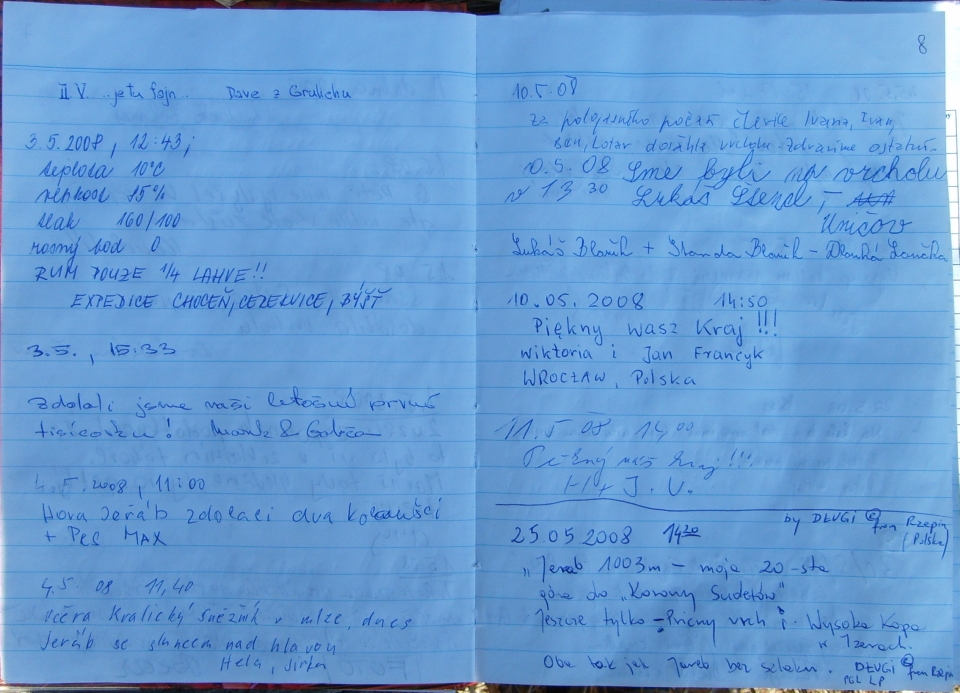 II V. ..je tu fajn.. Dave z Gralichu
3.5.2008, 12:43;
teplota 10°C
vlhkost 15%
tlak 160/100
rosný bod 0
RUM POUZE 1/4 LAHVE!!
EXPEDICE CHOCEŇ, CEREKVICE, BÝŠŤ
3.5., 15:33
Zdolali jsme naši letošní první
tisícovku! Marek &
4.5.2008, 11:00
Hora Jeřáb zdolali dva kolouušci
+ PES MAX
4.5. 08 11,40
včera Králický Sněžník v mlze, dnes
Jeřáb se sluncem nad hlavou
Hela, Jirka
8
10.5.08
Za polojasného počasí čtveřice Ivana, Ivan,
dosáhla vrcholu. Zdravíme ostatní.
10.5.08 Sme byli na vrcholu
v 13 30 Lukáš
Uničov
Lukáš Blaník + Standa Blaník - Dlouhá Loučka
10.05.2008 14:50
Piękny wasz Kraj!!!
Wiktoria i Jan Francyk
WROCŁAW, Polska
11.5 08 14 00
náš kraj!!!
J. V.
by DŁUGI from Rzepin
(Polska)
25.05.2008 14 30
"Jerab 1003m - moja 20-sta
góra do "Korony Sudetów"
Jeszcze tylko - Pricny vrch i Wysoka Kopa
w Izerach.
Oba tak jak Jerab bez szlaku. DŁUGI from Rzepin
PGL LP